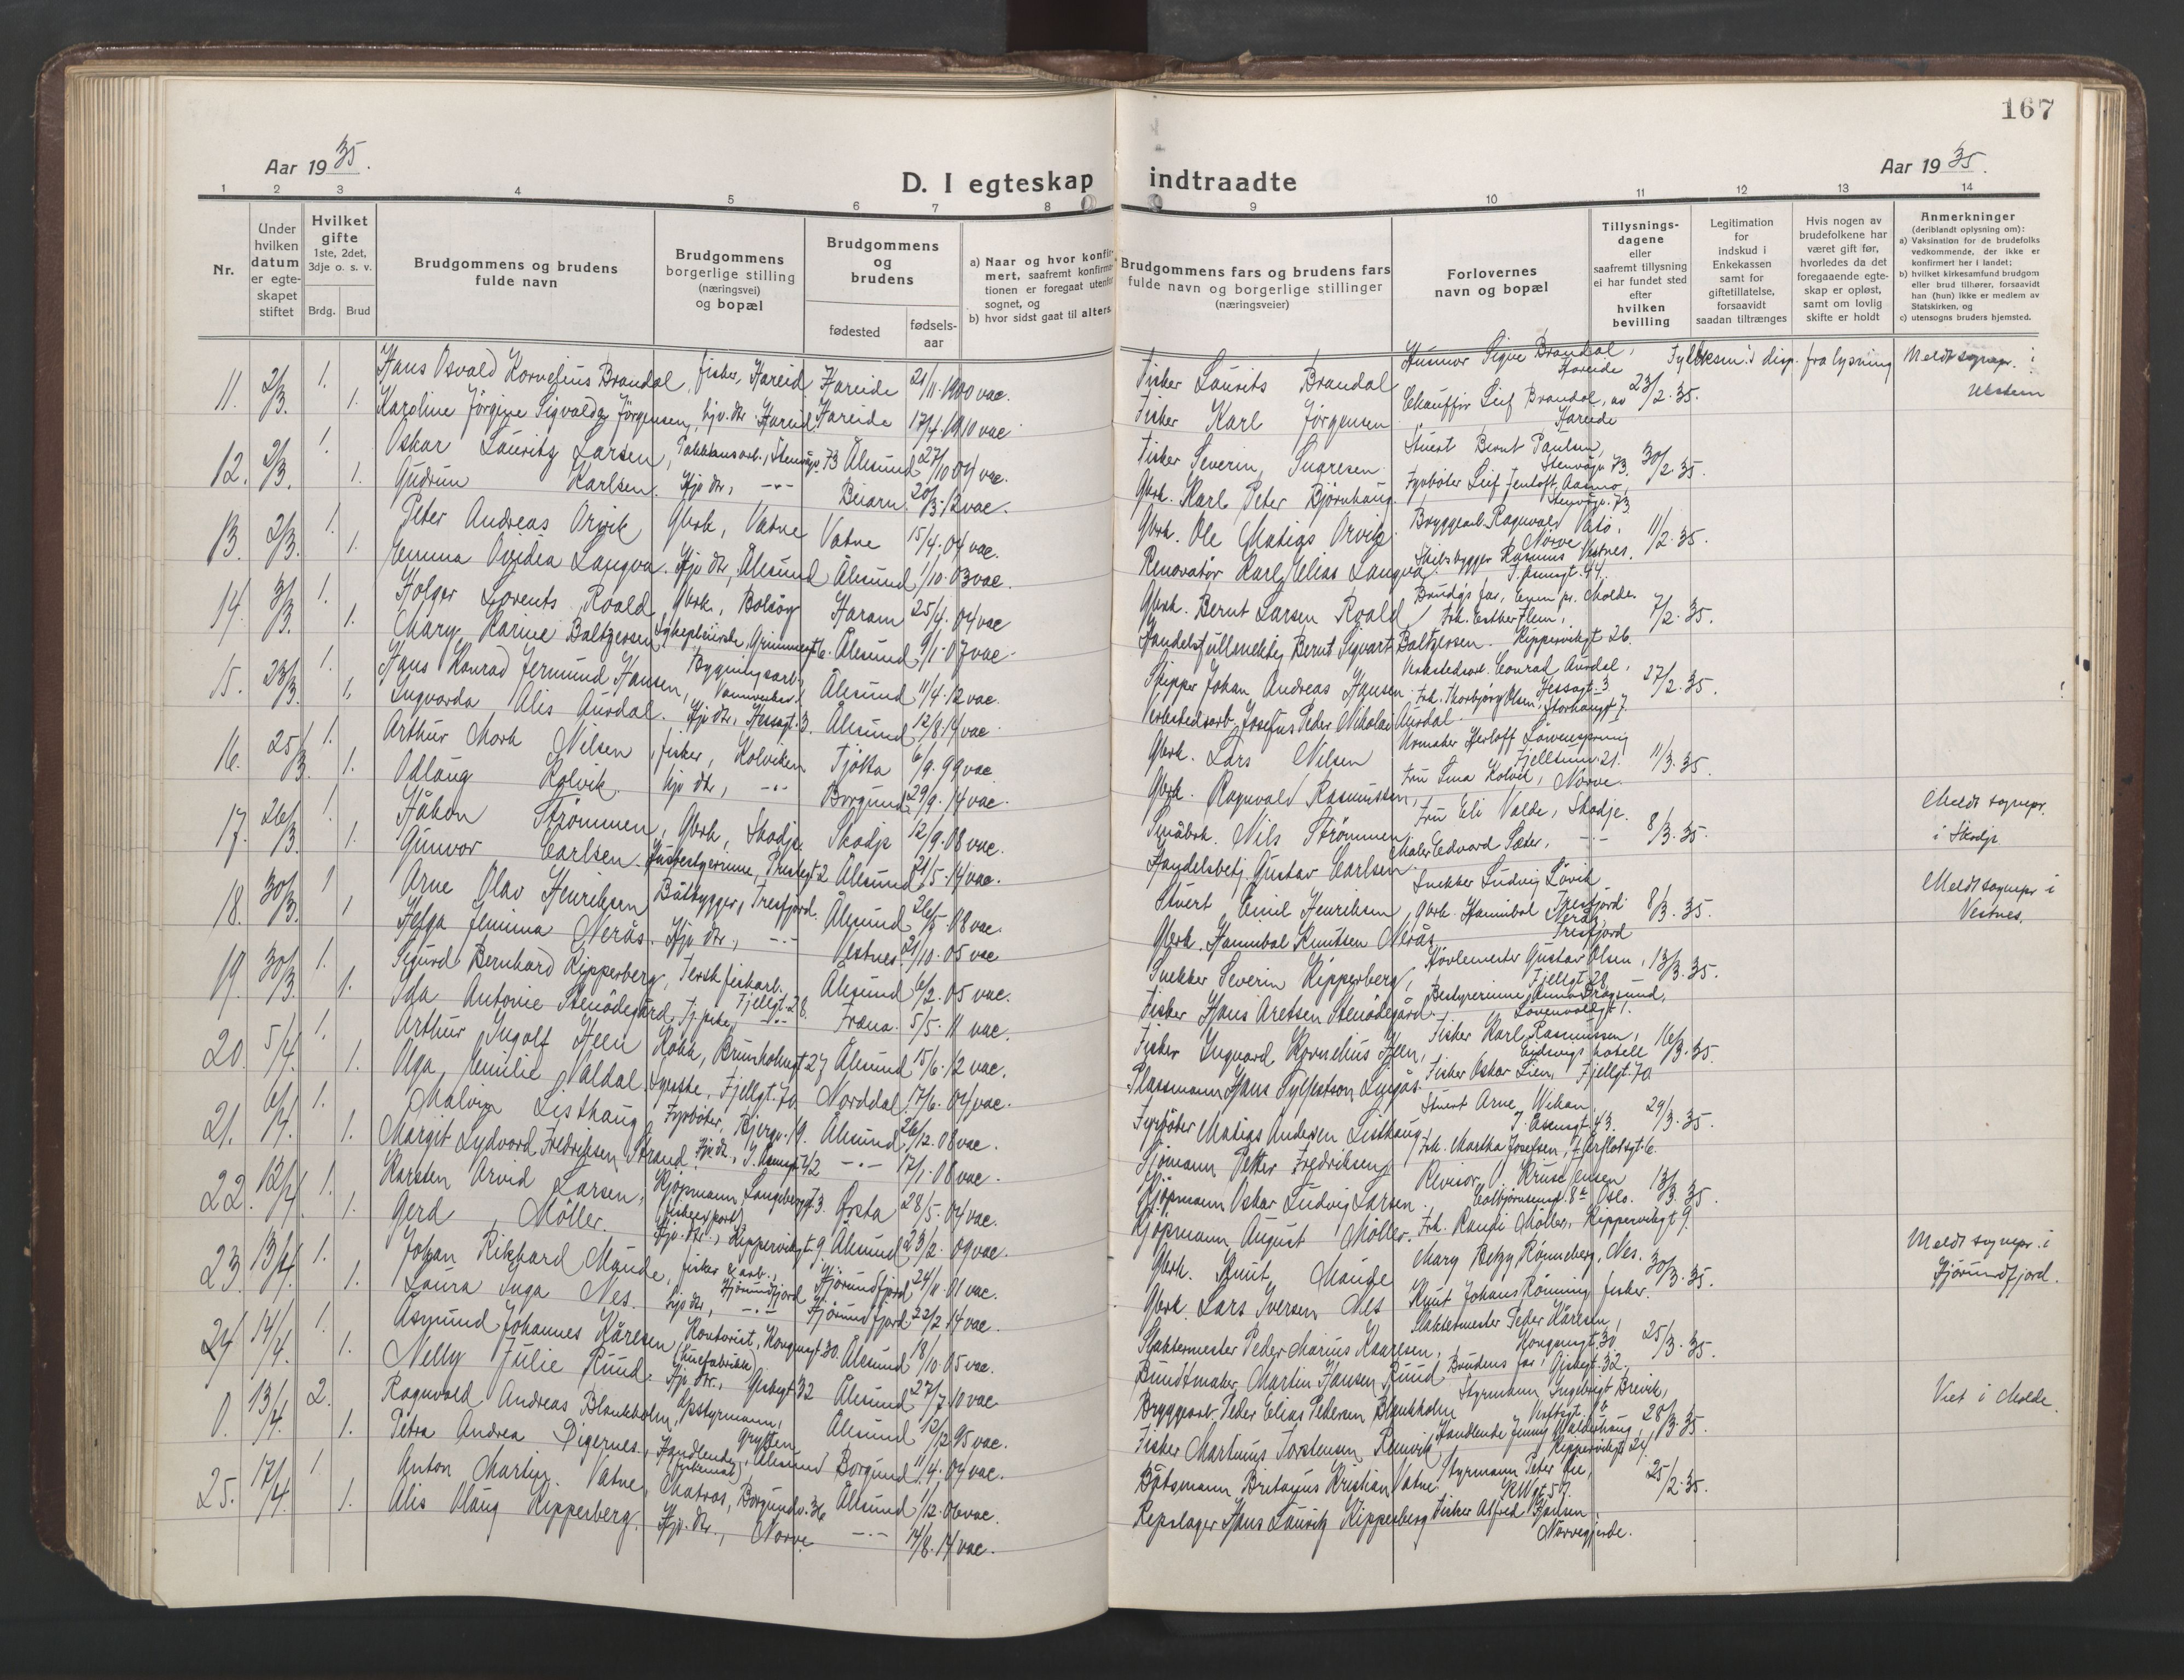 167
Aar 1935.
Aar 1935.
D. I egteskap indtraadte
1 2 3 4 5 6 7 8 9 10 11 12 13 14
Nr.
Under hvilken datum er egteskapet stiftet
Hvilket gifte 1ste, 2det, 3dje o. s. v.
Brdg. Brud
Brudgommens og brudens fulde navn
Brudgommens borgerlige stilling (næringsvei) og bopæl
Brudgommens og brudens
fødested
fødsels-aar
a) Naar og hvor konfirmert, saafremt konfirmationen er foregaat utenfor sognet, og
b) hvor sidst gaat til alters.
Brudgommens fars og brudens fars fulde navn og borgerlige stillinger (næringsveier)
Forlovernes navn og bopæl
Tillysningsdagene eller saafremt tillysning ei har fundet sted efter hvilken bevilling
Legitimation for indskud i Enkekassen samt for giftetillatelse, forsaavidt saadan tiltrænges
Hvis nogen av brudefolkene har været gift før, hvorledes da det foregaaende egteskap er opløst, samt om lovlig skifte er holdt
Anmerkninger (deriblandt oplysning om):
a) Vaksination for de brudefolks vedkommende, der ikke er konfirmert her i landet;
b) hvilket kirkesamfund brudgom eller brud tilhører, forsaavidt han (hun) ikke er medlem av Statskirken, og
c) utensogns bruders hjemsted.
11. 2/3. 1. Hans Osvald Kornelius Brandal, fisker, Hareid Hareide 21/11. 1900 vac. Fisker Laurits Brandal Sigve Brandal, Hareide
1. Karoline Jörgine Sigvalda Jörgensen, hjv. dtr. Hareid. Hareide 17/4. 1910 vac. Fisker Karl Jörgensen Chaufför Leif Brandal, Hareide 23/2. 35. Fylkesm.s disp. fra lysning Meldt sognepr. i Ulstein
12. 2/3. 1. Oskar Lauritz Larsen, Pakkhusarb., Stenvågv. 73 Ålesund 27/10 04 vac. Fisker Severin Stuert Bernt Paulsen, Stenvågv. 73.
1. Gudrun Karlsen. Hjv dtr, -"- Beiarn. 20/3. 12 vac. Gbrk. Karl Peter Björnhaug Fyrböter Leif Aasmo, Stenvågv. 73 30/2. 35.
13. 2/3. 1. Peter Andreas Orvik Gbrk, Vatne Vatne 15/4. 04 vac. Gbrk. Ole Matias Orvik Bryggearb. Ragnvald Vatö, Nörve
1. Emma Ovidea Langva. Hjv dtr, Ålesund Ålesund 1/10. 03 vac. Renovatör Karl Elias Langva Skibsbygger Rasmus Vestnes. 11/2. 35.
14. 3/3. 1. Holger Lorents Roald Gbrk, Bolsöy Haram 25/4. 04 vac Gbrk. Bernt Larsen Roald Brudg's far, pr. Molde.
1. Mary Karine Baltzersen Sykepleierske, Grimmergt 6. Ålesund 9/1. 07 vac. Handelsfullmektig Bernt Sigvart Baltzersen. Frk. Esther Flem, Kippervikgt 26. 7/2. 35.
15. 23/3. 1. Hans Konrad Jermund Hansen, Bygningsarb. Ålesund 11/4. 12 vac. Skipper Johan Andreas Hansen. Verkstedsarb. Conrad Aurdal, Hessagt. 3
1. Ingvarda Alis Aurdal. Hjv dtr, Hessagt. 3. Ålesund 12/8. 14 vac. Verkstedsarb. Josefus Peder Nikolai Aurdal. Frk. Thorbjørg Olsen, Storhauggt 7. 27/2. 35.
16. 25/3. 1. Arthur Mork Nilsen, fisker, Kolviken Tjötta 6/9. 99 vac. Gbrk. Lars Nilsen Urmaker Herloff Löwenspring Fjelltun 21.
1. Odlaug Kolvik. hjv dtr, -"- Borgund 29/9. 14 vac. Gbrk. Ragnvald Rasmussen, Fru Sina Kolvik, Nörve. 11/3. 35.
17. 26/3. 1. Håkon Strömmen, Gbrk, Skodje. Skodje 12/9. 08 vac. Småbrk. Nils Strömmen Fru Eli Valde, Skodje.
1. Gunvor Carlsen. Husbestyrerinne, Prestegt 2 Ålesund 21/5. 14 vac. Handelsbetj. Gustav Carlsen Maler Edvard Sæter, -"- 8/3. 35. Meldt sognepr. i Skodje.
18. 30/3. 1 Arne Olav Henriksen Båtbygger, Tresfjord. Ålesund 26/5 08 vac. Stuert Emil Henriksen Snekker Ludvig Lövik Tresfjord
1 Helga Jenima Nerås. Hjv dtr, -"- Vestnes 21/10. 05 vac Gbrk. Hannibal Knutsen Nerås Gbrk. Hannibal Nerås Tresfjord 8/3. 35. Meldt sognepr. i Vestnes.
19. 30/3. 1. Sigurd Bernhard Kipperberg, Fersk fiskarb. Fjellgt 28. Ålesund 6/2. 05 vac. Snekker Severin Kipperberg, Hövlemester Gustav Olsen, Fjellgt 28
1. Ida Antonie Stenödegård, -"- Fræna. 5/5. 11 vac. Fisker Hans Aretsen Stenödegård. Bestyrerinne Anna Dragsund, Lövenvollgt 1. 13/3. 35.
20. 5/4. 1. Arthur Ingolf Heen Kokk, Brunholmgt 27 Ålesund 15/6. 12 vac. Fisker Ingvard Kornelius Heen, Fisker Karl Rasmussen, Eidsvigs hotell
1. Olga Emilie Valdal. Syerske, Fjellgt. 70. Norddal. 17/6. 04 vac. Plassmann Hans Sylfestson Lingås. Fisker Oskar Lien, Fjellgt. 70. 16/3. 35.
21. 6/4. 1. Malvin Listhaug, Fyrböter, Bjergv. 19. Ålesund 26/12. 08 vac. Fyrböter Matias Andersen Listhaug, Stuert Arne Wikan J. Aasengt. 43.
1. Margit Lydvord Fredriksen Strand. Hjv dtr, J. Aasengt 42 -"- 17/1. 08 vac. Sjömann Petter Fredriksen Frk. Martha Josefsen, 29/3. 35.
22. 12/4. 1. Karsten Arvid Larsen, Kjöpmann, (fiskeexport) Örsta 28/5. 04 vac. Kjöpmann Oskar Ludvig Larsen. Revisor Oslo.
1. Gerd Möller. Hjv. dtr., Kippervikgt. 9. Ålesund 23/2. 09 vac. Kjöpmann August Möller. Frk. Randi Möller, Kippervikgt 9. 13/3. 35.
23. 13/4. 1. Johan Rikhard Maude, fisker & arb., Hjörundfjord Hjörundfjord 24/11 01 vac. Gbrk. Knut Maude Mary Betzy Rönneberg, Nes.
1. Laura Inga Nes. hjv dtr, -"- Hjörundfjord 22/2 14 vac. Gbrk. Lars Iversen Nes Knut Johans Rönning, fisker. 30/3. 35. Meldt sognepr. i Hjörundfjord.
24 14/4. 1. Åsmund Johannes Kåresen, Kontorist, Kongensgt 30. Ålesund 18/10. 05 vac. Slaktermester Peder Marius Kaaresen, Slaktermester Peder Kåresen, Kongensgt 30
1. Nelly Julie Ruud. Hjv. dtr., Gjskegt 32 Ålesund 27/7 10 vac Bundtmaker Martin Hansen Ruud Brudens far, Gjskegt. 32. 25/3. 35.
0. 13/4. 2. Ragnvald Andreas Blankholm, styrmann, Grytten Ålesund 12/12 95 vac. Bryggearb. Peder Elias Pedersen Blankholm Styrmann Ingebrigt Brevik,
1. Petra Andrea Digernes. Handlende, Ålesund Borgund. 11/4. 04 vac. Fisker Martinus Torstensen Remvik Handlende Jenny Walderhaug, Kippervikgt 24 28/3. 35. Viet i Molde.
25. 17/4. 1 Anton Martin Vatne, Matros, Borgundv. 36 Ålesund 1/12. 06 vac. Båtsmann Britanus Kristian Vatne Styrmann Peter
1. Alis Olaug Kipperberg. Hjv. dtr., Nörve -"- 14/8. 14 vac. Repslager Hans Lauritz Kipperberg Fisker Alfred Hansen Nörvegjerde. 25/2. 35.